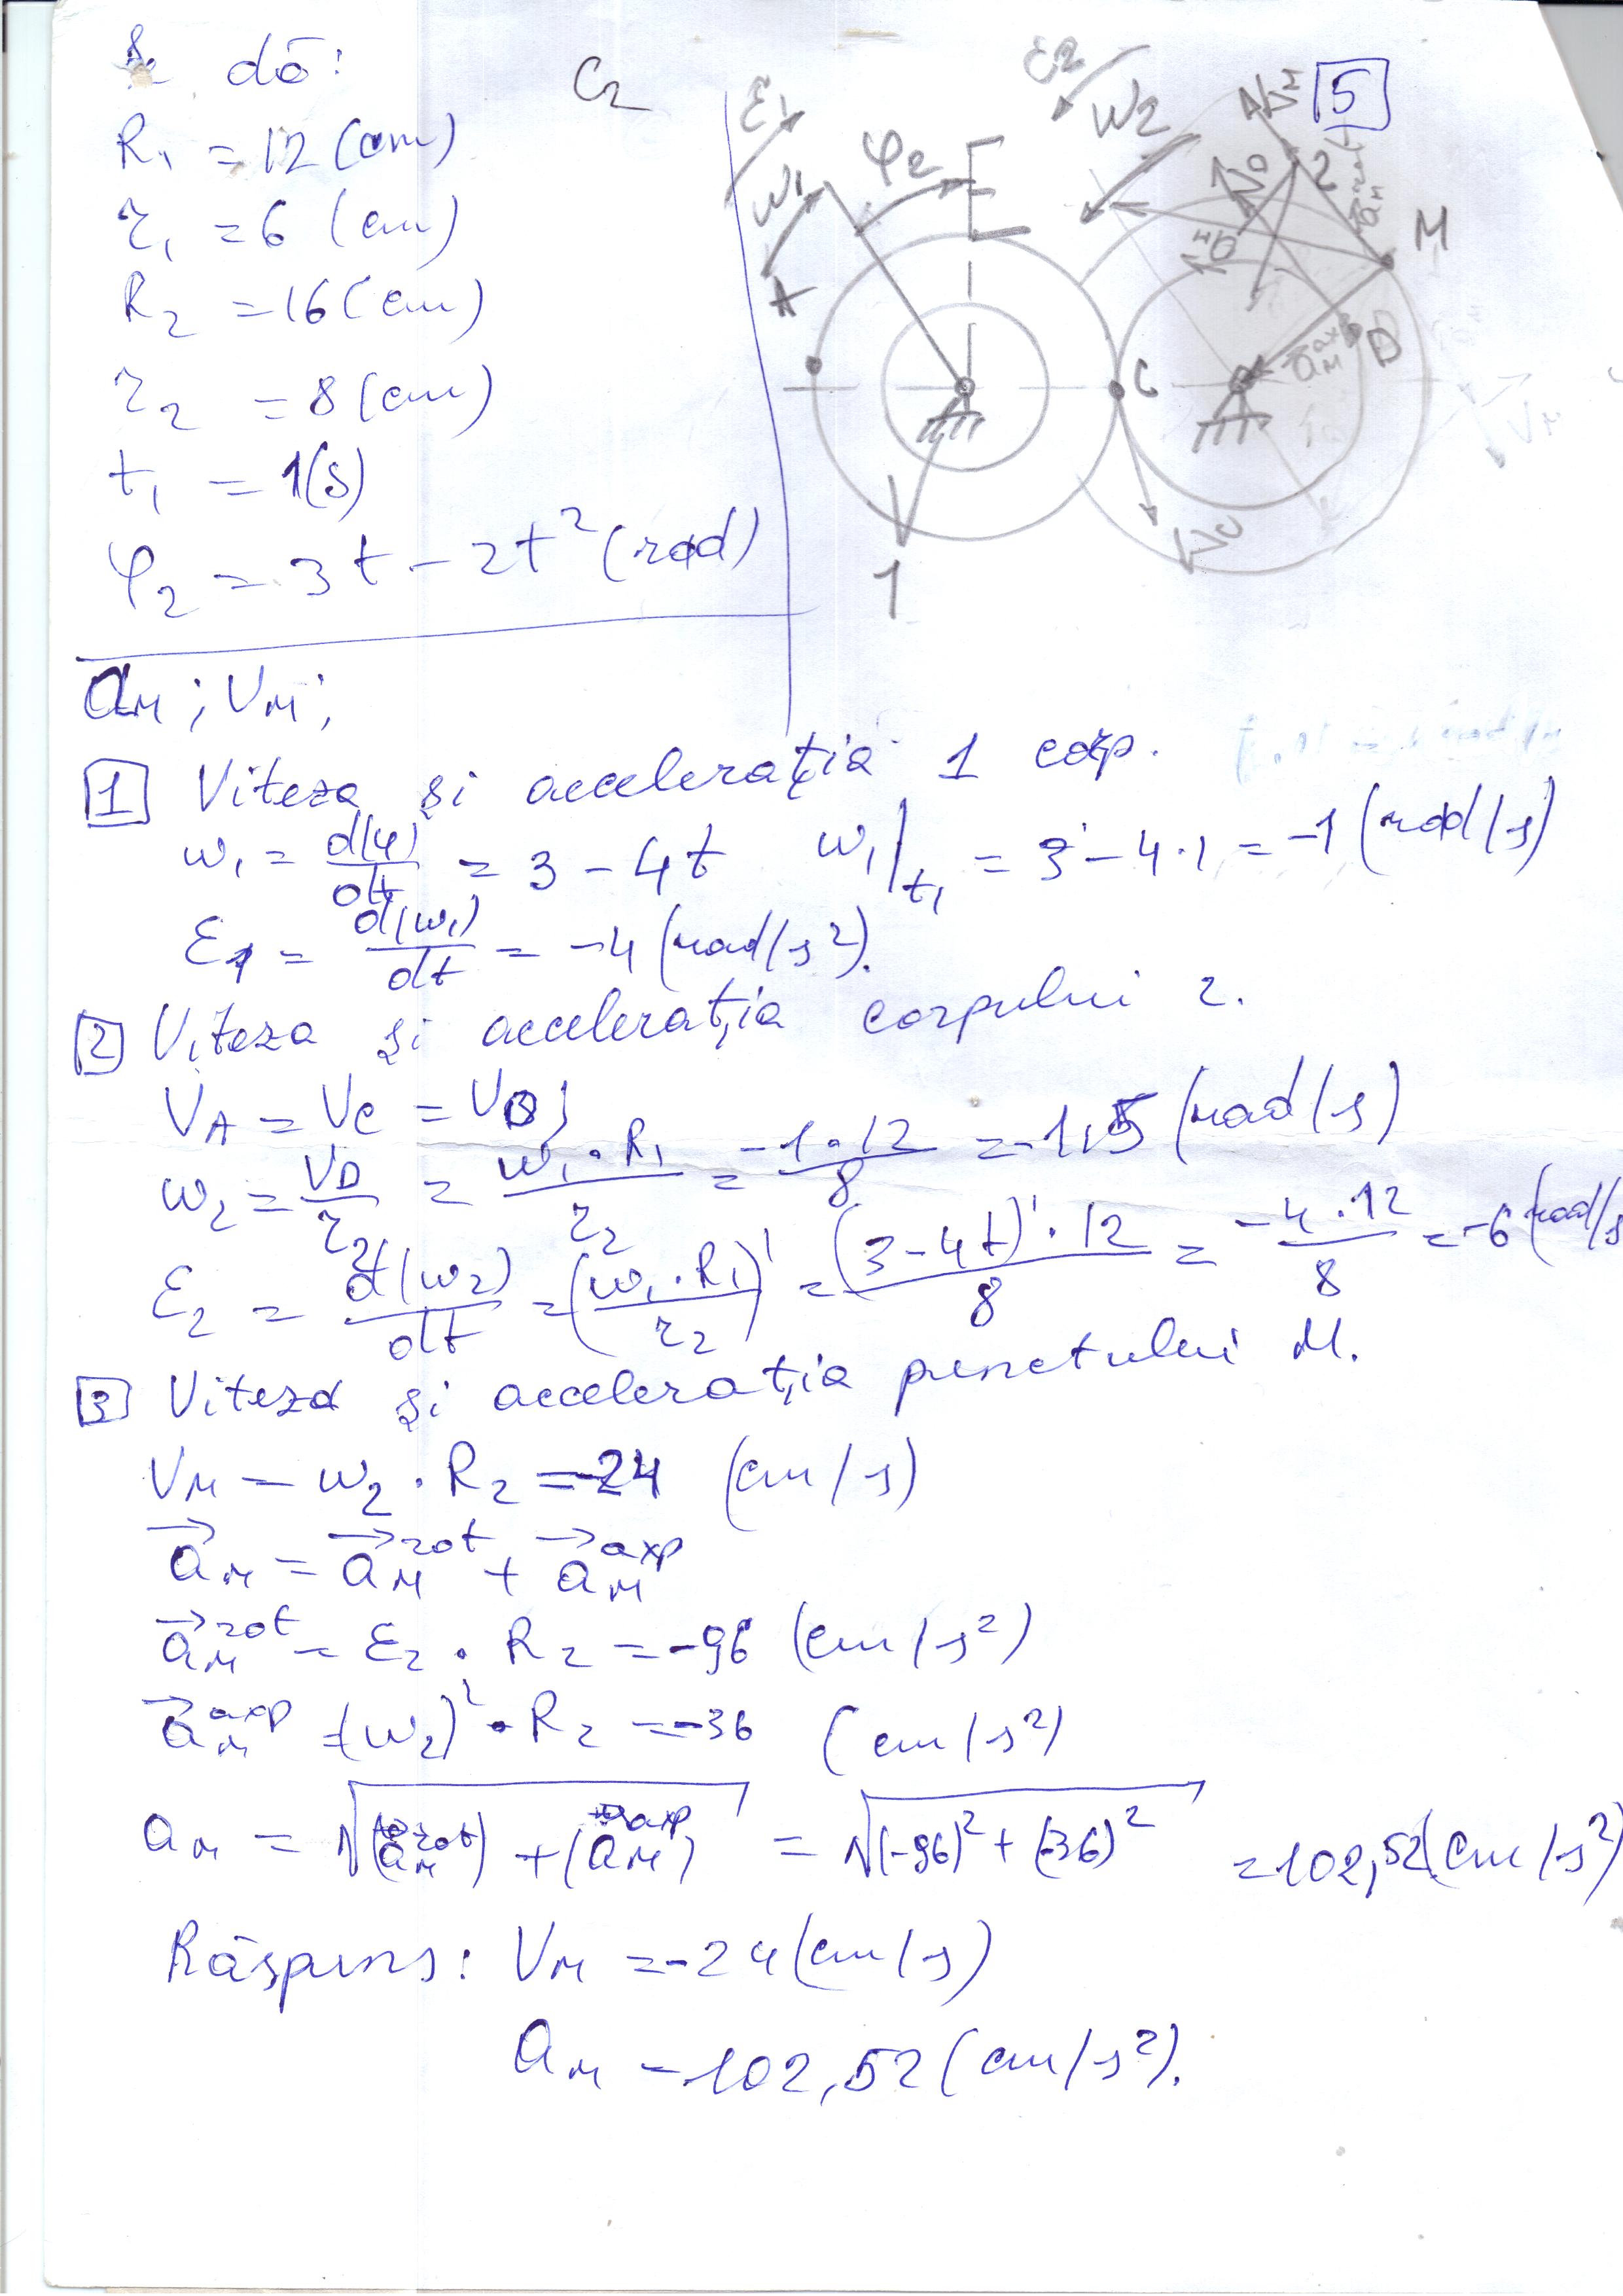 Se dă:
C2
5
R1 = 12 (cm)
r1 = 6 (cm)
R2 = 16 (cm)
r2 = 8 (cm)
t1 = 1(s)
φ2 = 3t - 2t² (rad)
ε1
W1
φ2
ε2
W2
A
C
2
M
D
VD
VC
1
aM; VM;
1 Viteza și accelerația 1 corp.
ω1 = d(φ)/dt = 3 - 4t ω1|t1 = 3 - 4·1 = -1 (rad/s)
ε1 = d(ω1)/dt = -4 (rad/s²).
2 Viteza și accelerația corpului 2.
VA = VC = VD;
ω2 = VD/r2 = ω1·R1/r2 = -1·12/8 = -1,5 (rad/s)
ε2 = d(ω2)/dt = (ω1·R1/r2)' = (3-4t)'·12/8 = -4·12/8 = -6 (rad/s
3 Viteza și accelerația punctului M.
VM = ω2·R2 = -24 (cm/s)
aM = aM^rot + aM^axp
aM^rot = ε2·R2 = -96 (cm/s²)
aM^axp = (ω2)²·R2 = -36 (cm/s²)
aM = √(aM^rot) + (aM^axp) = √(-96)² + (-36)² = 102,52 (cm/s²)
Răspuns: VM = -24 (cm/s)
aM = 102,52 (cm/s²).